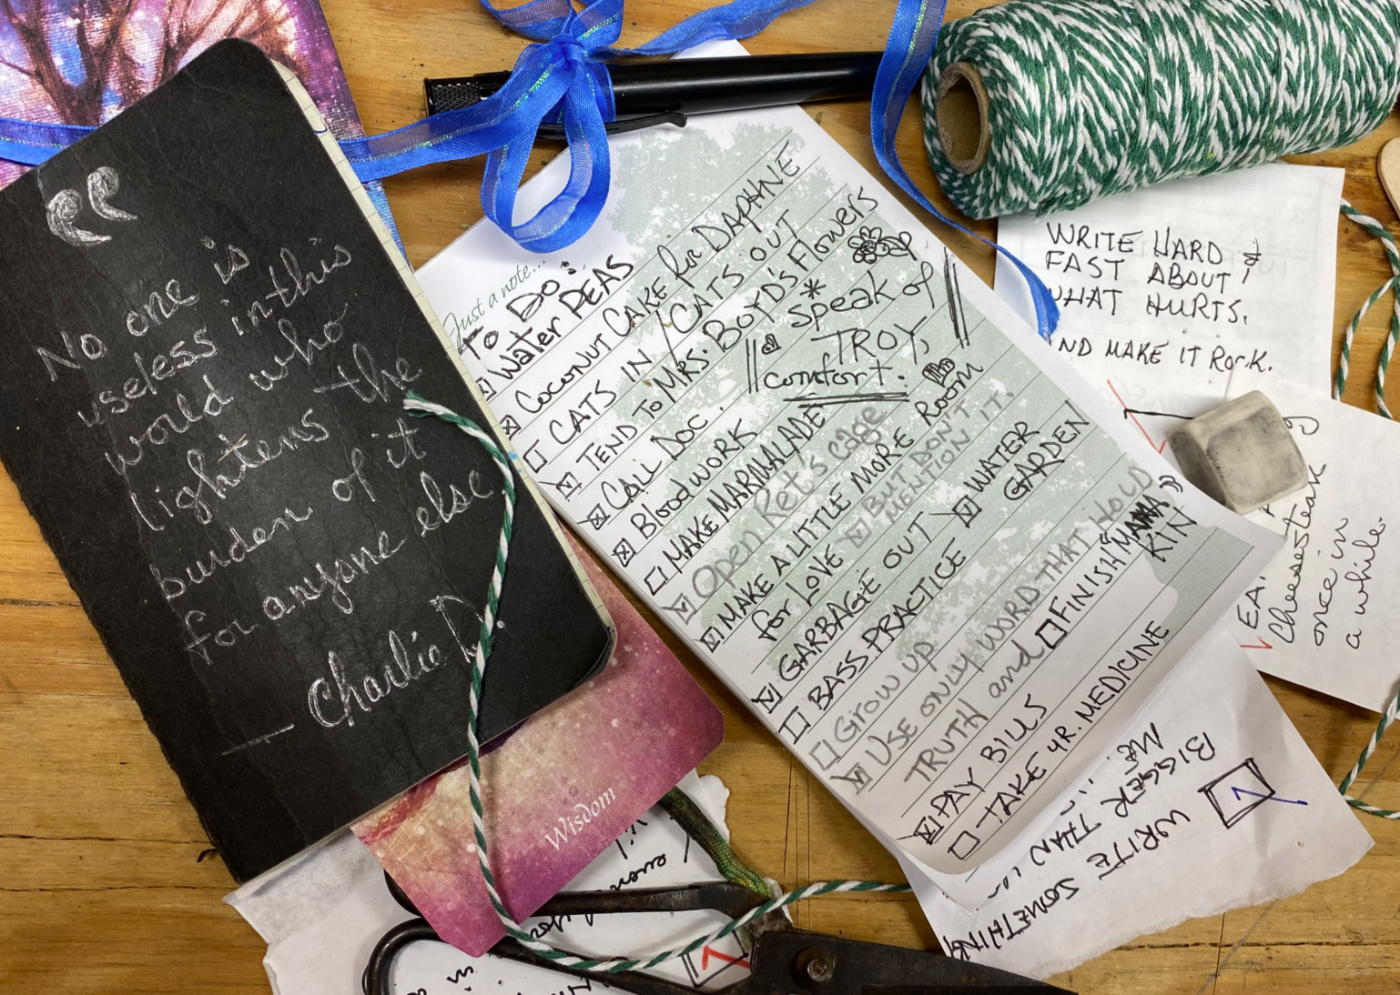 No one is
useless in this
world who
lightens the
burden of it
for anyone else.
— Charlie D.
Just a note...
TO DO:
Water PEAS
COCONUT CAKE for DAPHNE
CATS IN / CATS OUT
TEND TO MRS. BOYD'S Flowers
CALL DOC.
* speak of
TROY,
comfort.
Bloodwork
MAKE MARMALADE
Open Ret's cage
MAKE A LITTLE MORE ROOM
for LOVE
BUT DON'T
MENTION IT.
GARBAGE OUT
WATER
GARDEN
BASS PRACTICE
Grow up
USE ONLY WORD THAT HOLD
TRUTH and
FINISH "MAMA"
KIN
PAY BILLS
TAKE YR. MEDICINE
WRITE HARD &
FAST ABOUT
WHAT HURTS.
AND MAKE IT ROCK.
EAT
Cheesesteak
once in
a while.
WRITE SOMETHING
BIGGER THAN
ME.
Wisdom